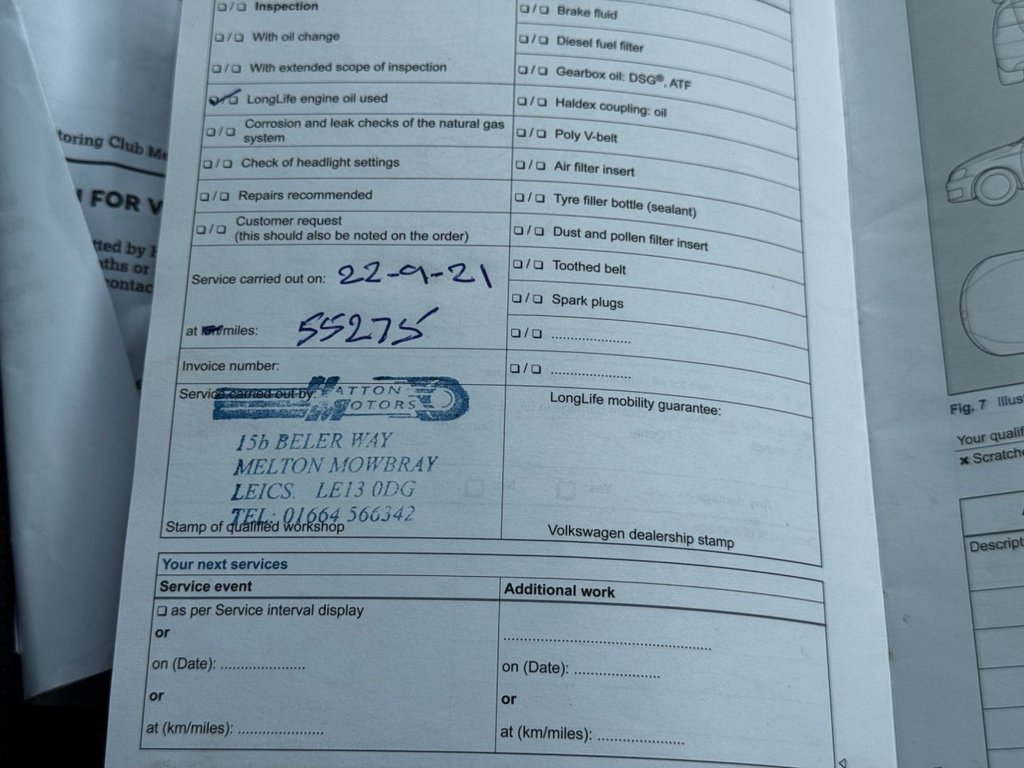 toring Club Me
FOR V
tted by
ths or
contac
❑/❑ Inspection
❑/❑ With oil change
❑/❑ With extended scope of inspection
❑/❑ LongLife engine oil used
❑/❑ Corrosion and leak checks of the natural gas
system
❑/❑ Check of headlight settings
❑/❑ Repairs recommended
❑/❑ Customer request
(this should also be noted on the order)
Service carried out on: 22-9-21
at km/miles: 55275
Invoice number:
Service carried out by:
HATTON
MOTORS
15b BELER WAY
MELTON MOWBRAY
LEICS. LE13 0DG
TEL: 01664 566342
Stamp of qualified workshop
❑/❑ Brake fluid
❑/❑ Diesel fuel filter
❑/❑ Gearbox oil: DSG®, ATF
❑/❑ Haldex coupling: oil
❑/❑ Poly V-belt
❑/❑ Air filter insert
❑/❑ Tyre filler bottle (sealant)
❑/❑ Dust and pollen filter insert
❑/❑ Toothed belt
❑/❑ Spark plugs
❑/❑ ......................
❑/❑ ......................
LongLife mobility guarantee:
Volkswagen dealership stamp
Your next services
Service event
❑ as per Service interval display
or
on (Date): ......................
or
at (km/miles): ......................
Additional work
......................................................
on (Date): ......................
or
at (km/miles): ......................
Fig. 7 Illus
Your qualif
✖ Scratche
Descript